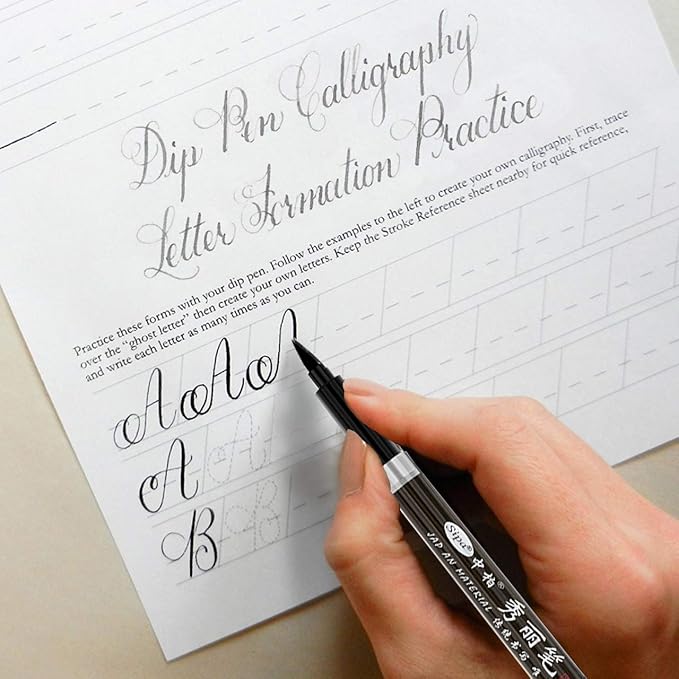 Dip Pen Calligraphy
Letter Formation Practice
Practice these forms with your dip pen. Follow the examples to the left to create your own calligraphy. First, trace
over the "ghost letter" then create your own letters. Keep the Stroke Reference sheet nearby for quick reference,
and write each letter as many times as you can.
A A A
A A
B B
Sipa® 中柏® 秀丽笔
JAPAN MATERIAL 传统书写